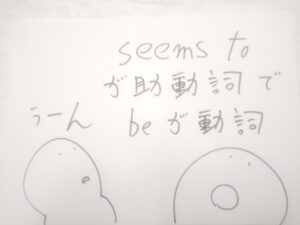 seems to
が助動詞で
beが動詞
うーん